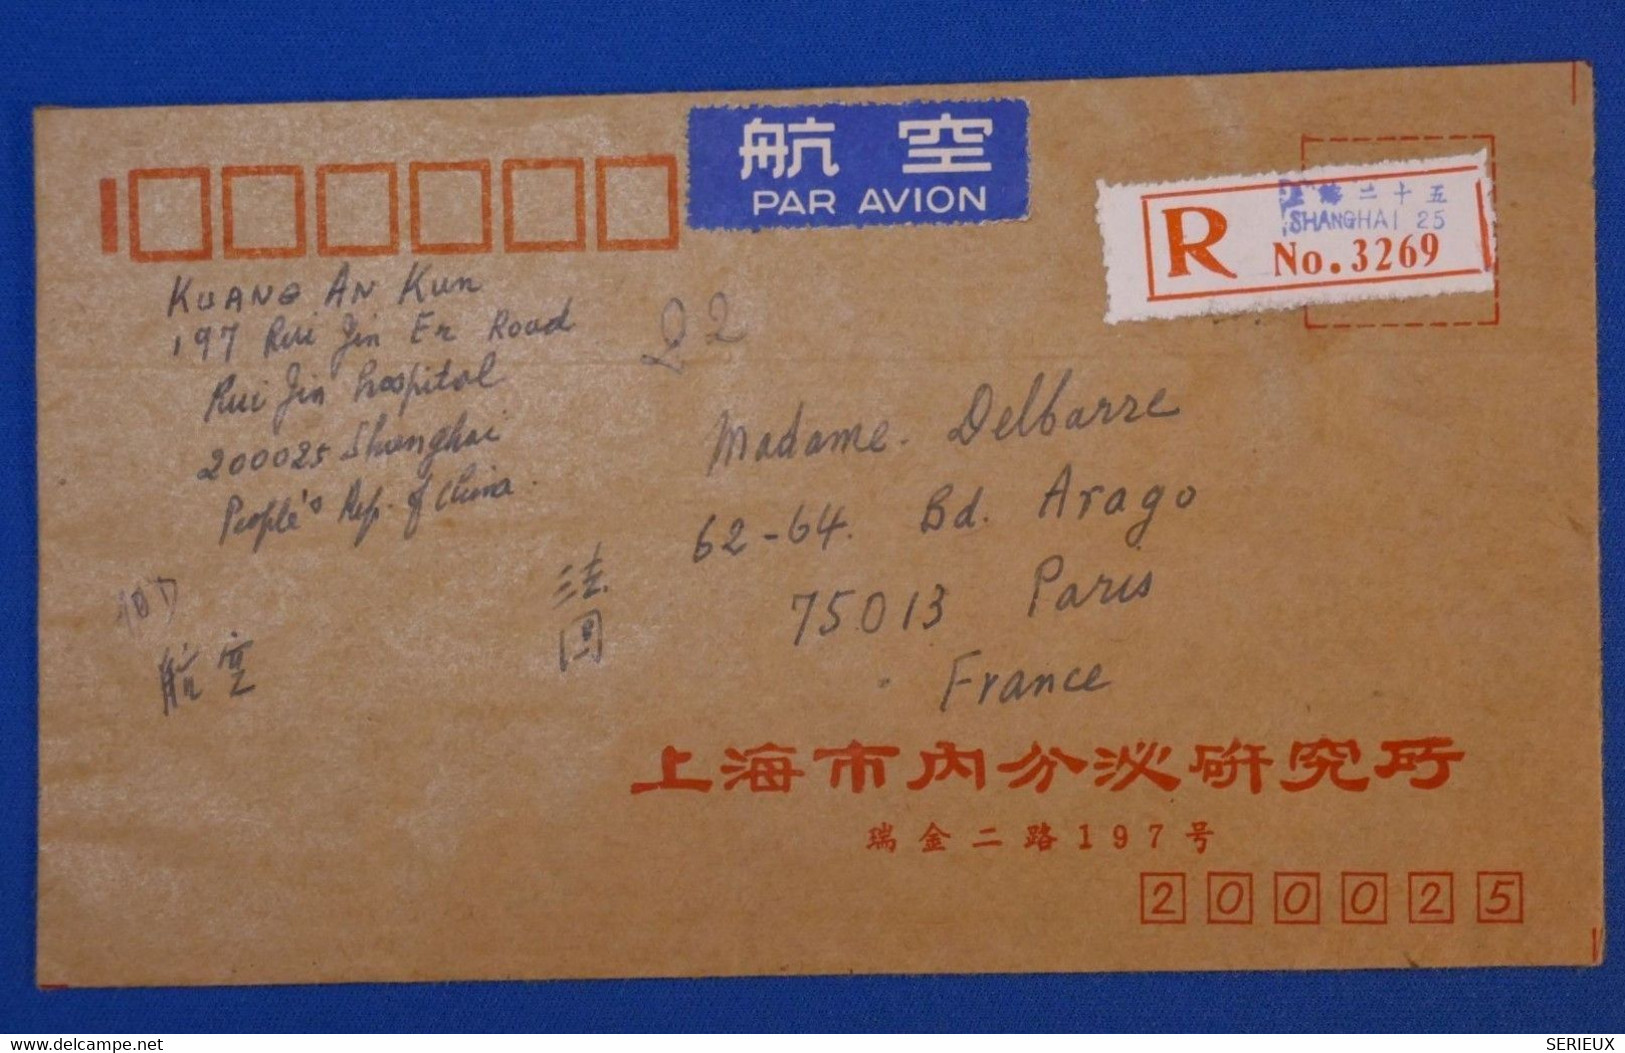 航空
PAR AVION
上海二十五
SHANGHAI 25
R No. 3269
KUANG AN KUN
197 Rui Jin Er Road
Rui Jin hospital
200025 Shanghai
People's Rep. of China.
Madame. Delbarre
62-64. Bd. Arago
75013 Paris
France
法
国
航空
上海市内分泌研究所
瑞金二路197号
200025
SERIEUX